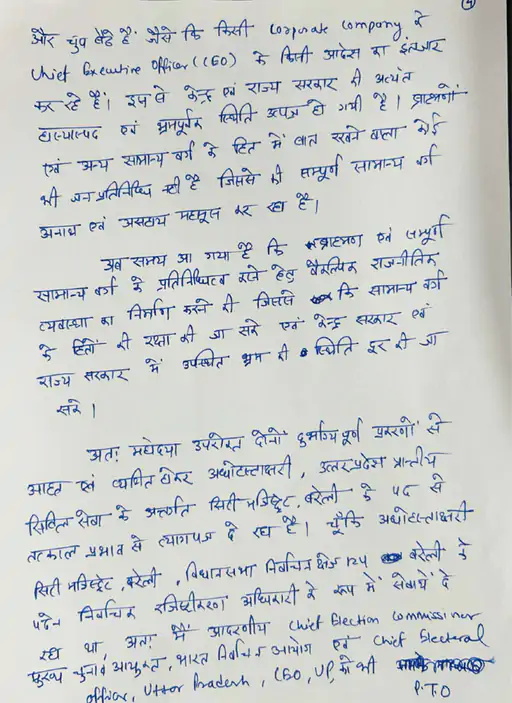 4
और चुप बैठे हैं जैसे कि किसी Corporate Company के
Chief Executive Officer (CEO) के किसी आदेश का इंतजार
कर रहे हैं। इससे केन्द्र एवं राज्य सरकार की अत्यंत
हास्यास्पद एवं भ्रमपूर्वक स्थिति उत्पन्न हो गयी है। ब्राह्मणों
एवं अन्य सामान्य वर्ग के हित में बात रखने वाला कोई
भी जन प्रतिनिधि नहीं है जिससे की सम्पूर्ण सामान्य वर्ग
अनाथ एवं असहाय महसूस कर रहा है।
अब समय आ गया है कि ब्राह्मण एवं सम्पूर्ण
सामान्य वर्ग के प्रतिनिधित्व करने हेतु वैकल्पिक राजनीतिक
व्यवस्था का निर्माण करने की जिससे कि सामान्य वर्ग
के हितों की रक्षा की जा सके एवं केन्द्र सरकार एवं
राज्य सरकार में उपस्थित भ्रम की स्थिति दूर की जा
सके।
अतः महोदया उपरोक्त दोनों दुर्भाग्यपूर्ण प्रकरणों से
आहत एवं व्यथित होकर अधोहस्ताक्षरी, उत्तरप्रदेश प्रान्तीय
सिविल सेवा के अन्तर्गत सिटी मजिस्ट्रेट, बरेली के पद से
तत्काल प्रभाव से त्यागपत्र दे रहा है। चूँकि अधोहस्ताक्षरी
सिटी मजिस्ट्रेट, बरेली, विधानसभा निर्वाचन क्षेत्र 124 बरेली के
पदेन निर्वाचक रजिस्ट्रीकरण अधिकारी के रूप में सेवायें दे
रहा था, अतः मैं आदरणीय Chief Election Commissioner
मुख्य चुनाव आयुक्त, भारत निर्वाचन आयोग एवं Chief Electoral
Officer, Uttar Pradesh, CEO, UP, को भी
P.T.O